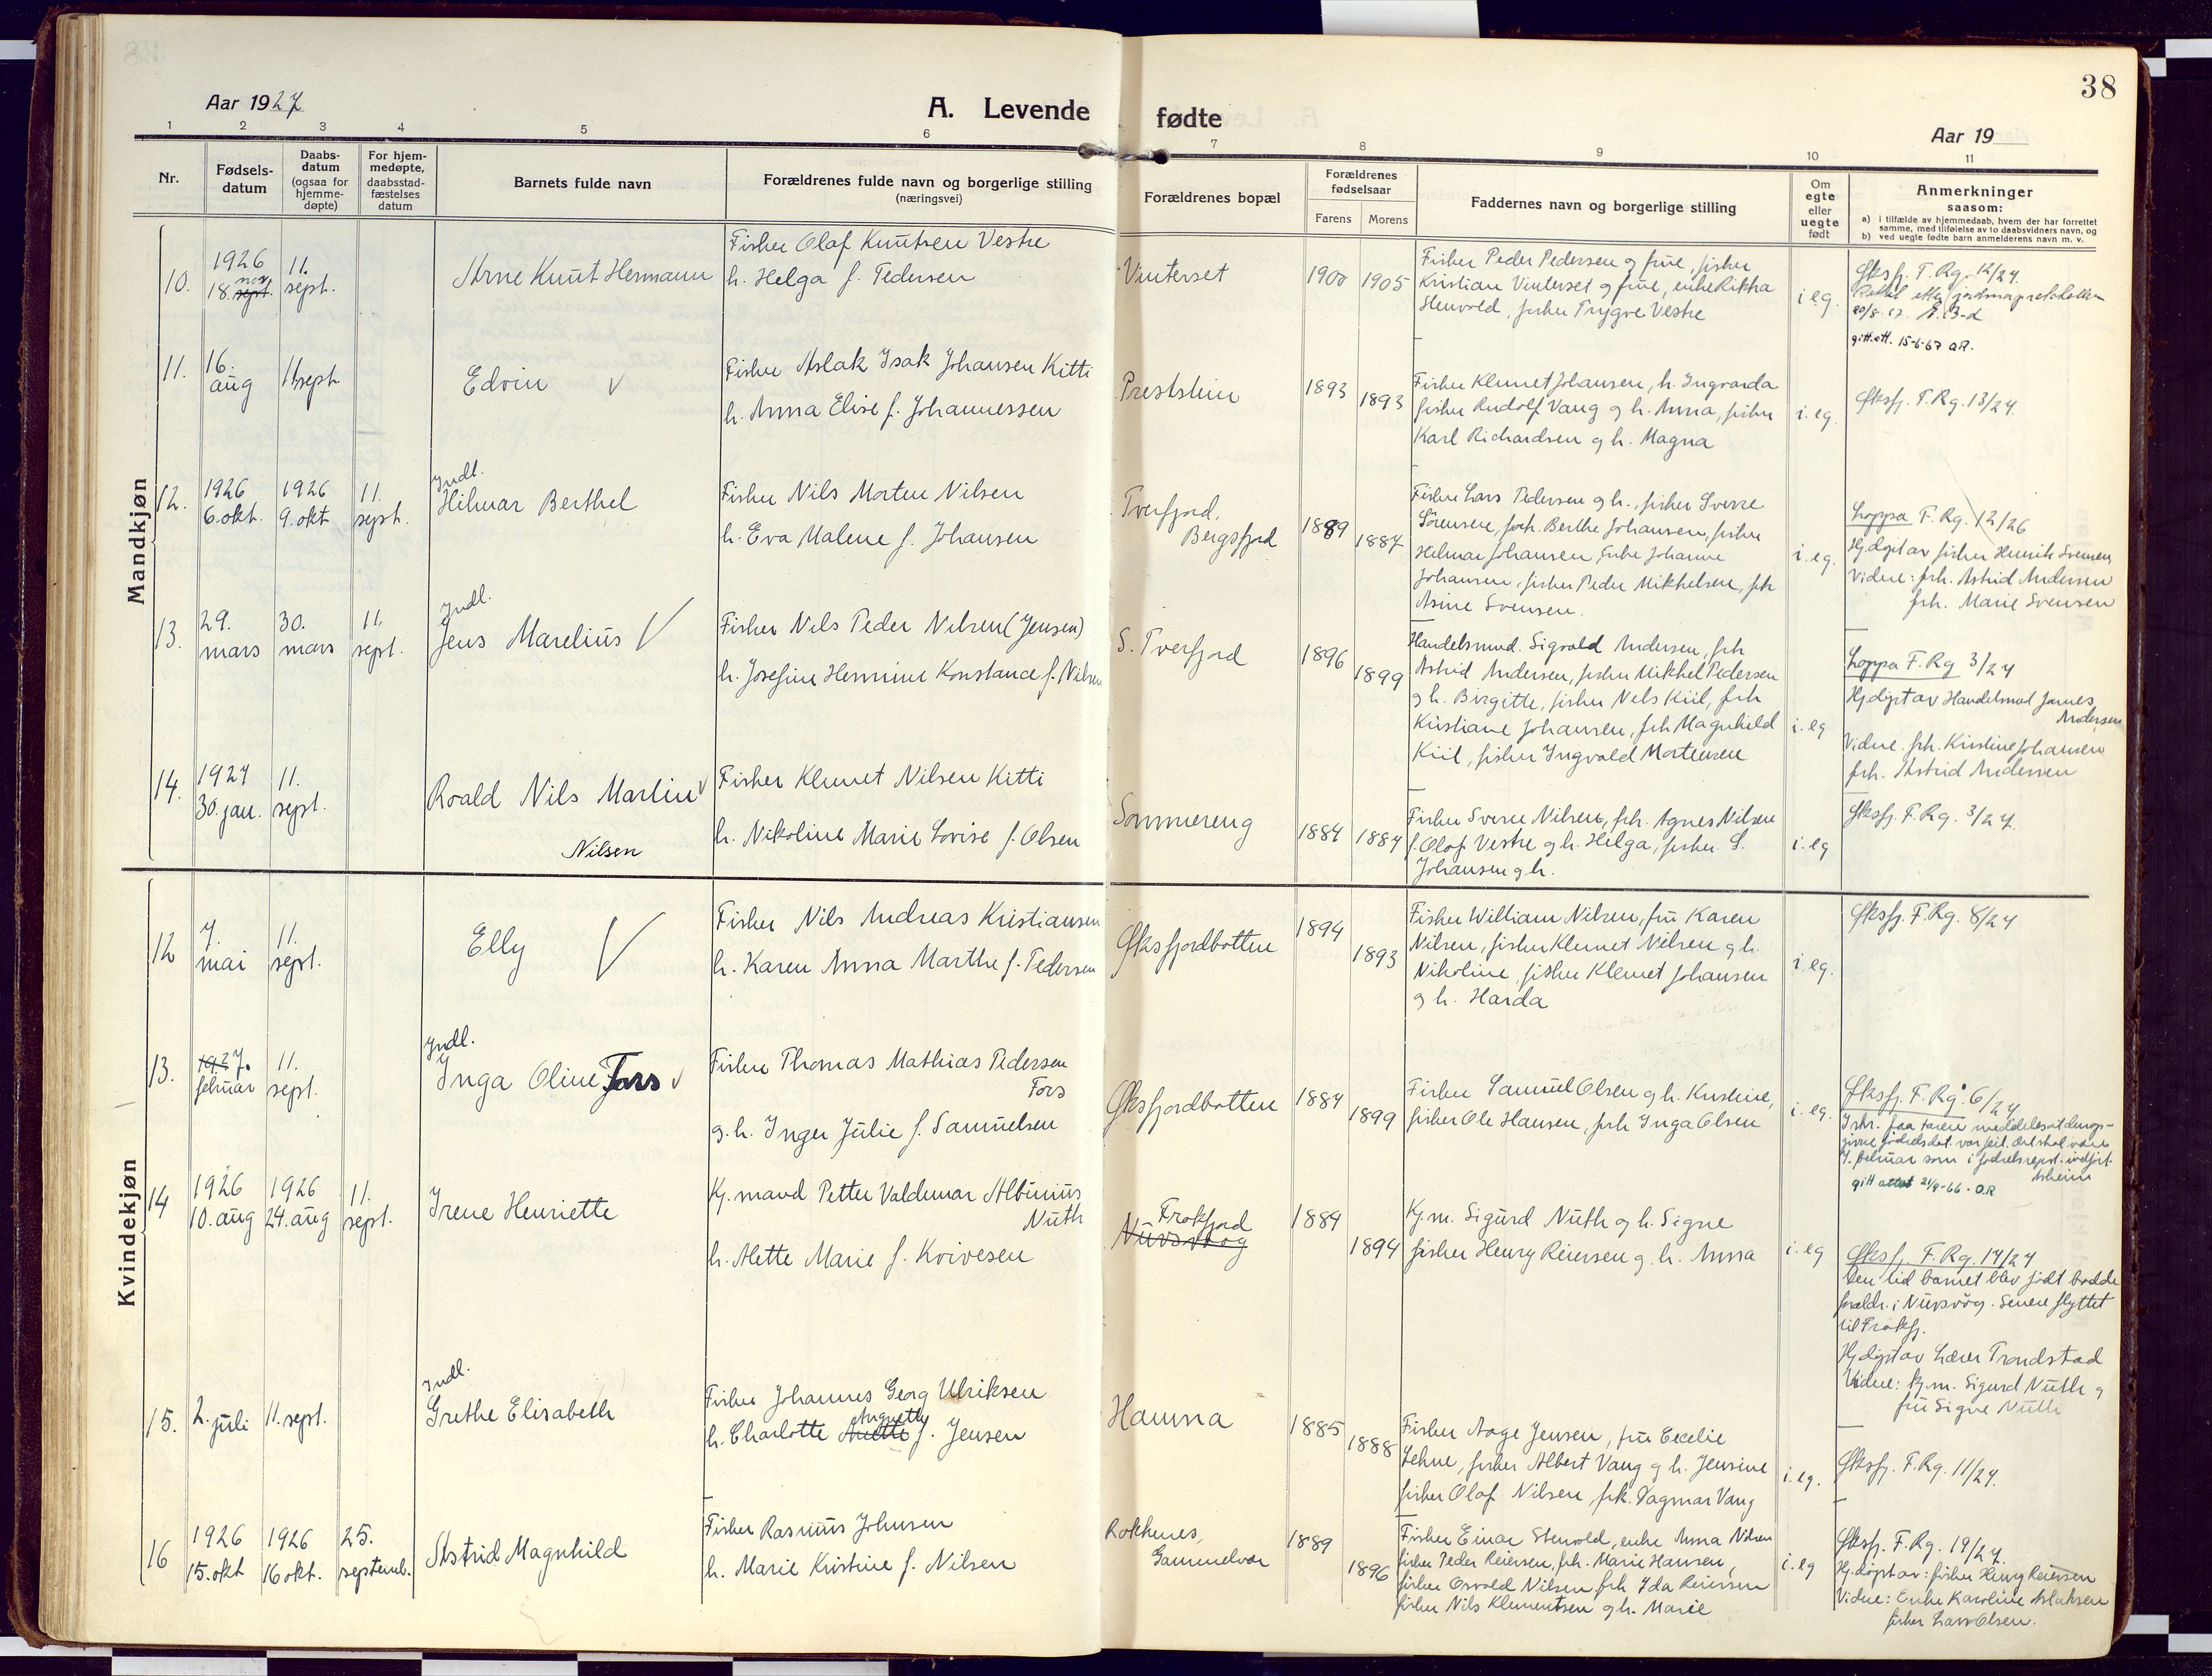 38
Aar 1927
A. Levende fødte
Aar 19
1 2 3 4 5 6 7 8 9 10 11
Nr.
Fødsels-
datum
Daabs-
datum
(ogsaa for
hjemme-
døpte)
For hjem-
medøpte,
daabsstad-
fæstelses
datum
Barnets fulde navn
Forældrenes fulde navn og borgerlige stilling
(næringsvei)
Forældrenes bopæl
Forældrenes
fødselsaar
Farens Morens
Faddernes navn og borgerlige stilling
Om
egte
eller
uegte
født
Anmerkninger
saasom:
a) i tilfælde av hjemmedaab, hvem der har forrettet
samme, med tilføielse av to daabsvidners navn, og
b) ved uegte fødte barn anmelderens navn m. v.
Mandkjøn
10.
1926
18. sept. nov
11.
sept.
Arne Knut Hermann
Fisker Olaf Knutsen Vestre
h. Helga f. Pedersen
Vinterset
1900 1905
Fisker Peder Pedersen og frue, fisker
Kristian Vinterset og frue, enke Rikka
Stenvold, fisker Trygve Vestre
i eg.
Øksfj. F. Rg. 12/27.
gift att. 15-6-67 O.R.
11.
16.
aug
11 sept
Edvin V
Fisker Aslak Isak Johansen Kitti
h. Anna Elise f. Johannessen
Prestslein
1893 1893
Fisker Klemet Johansen, h. Ingvarda
fisker Rudolf Vang og h. Anna, fisker
Karl Richardsen og h. Magna
i. eg.
Øksfj. F. Rg. 13/27.
12.
1926
6. okt.
1926
9. okt
11.
sept.
Indl.
Hilmar Berthel
Fisker Nils Morten Nilsen
h. Eva Malene f. Johansen
Tverfjord,
Bergsfjord
1889 1887
Fisker Lars Pedersen og h., fisker Sverre
Sørensen, frk. Berthe Johansen, fisker
Hilmar Johansen, Enke Johanne
Johansen, fisker Peder Mikkelsen, frk
Asine Svensen.
i. eg.
Loppa F. Rg. 12/26
Hj.døpt av fisker Henrik Svensen
Vidne: frk. Astrid Andersen
frk. Marie Svensen
13.
29.
mars
30.
mars
11.
sept.
Indl.
Jens Marelius V
Fisker Nils Peder Nilsen (Jensen)
h. Josefine Hermine Konstance f. Nilsen
S. Tverfjord
1896 1899
Handelsmnd. Sigvald Andersen, frk
Astrid Andersen, fisker Mikkel Pedersen
og h. Birgitte, fisker Nels Kiil, frk
Kristiane Johansen, frk Magnhild
Kiil, fisker Ingvald Mortensen
i. eg
Loppa F. Rg 3/27
Hj.døpt av Handelsmnd James
Andersen
Vidne. frk. Kristine Johansen
frk. Astrid Andersen
14.
1927
30. jan.
11.
sept.
Roald Nils Martin V
Nilsen
Fisker Klemet Nilsen Kitti
h. Nikoline Marie Lovise f. Olsen
Sommereng
1884 1887
Fisker Sverre Nilsen, frk. Agnes Nilsen
f. Olaf Vestre og h. Helga, fisker S.
Johansen og h.
i. eg
Øksfj. F. Rg. 3/27.
Kvindekjøn
12
7.
mai
11.
sept.
Elly V
Fisker Nils Andreas Kristiansen
h. Karen Anna Marthe f. Pedersen
Øksfjordbotten
1894 1893
Fisker William Nilsen, fru Karen
Nilsen, fisker Klemet Nilsen og h.
Nikoline, fisker Klemet Johansen
og h. Harda
i. eg.
Øksfj. F. Rg. 8/27
13.
1927.
februar
11.
sept.
Indl.
Inga Oline Fors V
Fisker Thomas Mathias Pedersen
Fors
og h. Inger Julie f. Samuelsen
Øksfjordbotten
1884 1899
Fisker Samuel Olsen og h. Kristine,
fisker Ole Hansen, frk Inga Olsen
i. eg.
Øksfj. F. Rg. 6/27
7. februar som i fødselsregist. indført.
gift attest 21/9-66. O.R
14
1926
10. aug
1926
24. aug
11.
sept.
Irene Henriette
Kj. mand Petter Valdemar Albinius
Nuth
h. Alette Marie f. Kvivesen
Frakfjord
Nuvsvaag
1889 1894
Kj. m. Sigurd Nuth og h. Signe
fisker Henry Reiersen og h. Anna
i. eg
Øksfj. F. Rg. 14/27
Den tid barnet blev født bodde
foreldr. i Nuvsvåg. Senere flyttet
til Frakfj.
Hj.døpt av Lærer Trondstad
Vidne: kj. m. Sigurd Nuth og
fru Signe Nuth
15.
2. juli
11. sept.
Indl.
Grethe Elisabeth
Fisker Johannes Georg Ulriksen
h. Charlotte Anette Augusta f. Jensen
Hamna
1885 1888
Fisker Aage Jensen, fru Cecelie
Lehne, fisker Albert Vang og h. Jensine
fisker Olaf Nilsen, frk. Dagmar Vang
i. eg.
Øksfj. F. Rg. 11/27.
16
1926
15. okt
1926
16 okt.
25.
septemb.
Astrid Magnhild
Fisker Rasmus Johnsen
h. Marie Kristine f. Nilsen
Rokkenes,
Gammelvær
1889 1896
Fisker Einar Stenvold, enke Anna Nilsen
fisker Peder Reiersen, frk. Marie Hansen,
fisker Osvald Nilsen, frk Ida Reiersen
fisker Nils Klementsen og h. Marie
i. eg
Øksfj. F. Rg. 19/27.
Hj.døpt av: fisker Henry Reiersen
Vidne: Enke Karoline Aslaksen
fisker Lars Olsen.